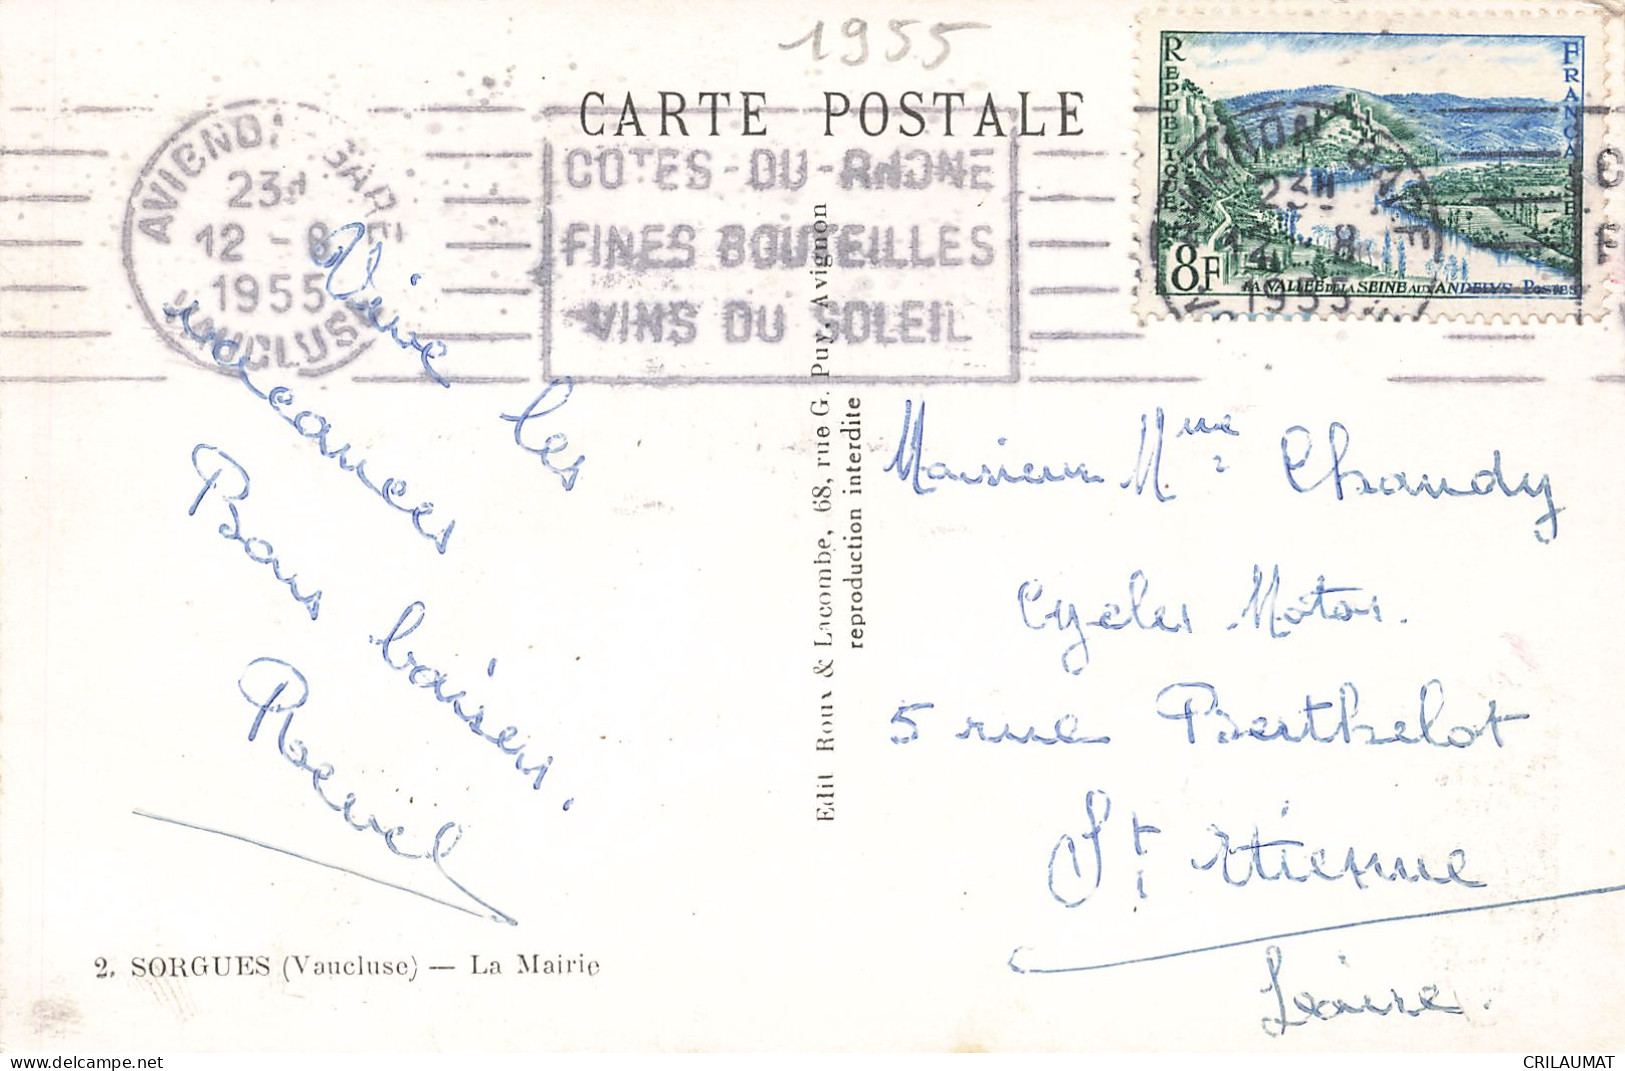 1955
CARTE POSTALE
AVIGNON GARE
23H
12 - 8
1955
VAUCLUSE
COTES-DU-RHONE
FINES BOUTEILLES
VINS DU SOLEIL
REPUBLIQUE FRANCAISE
8F
LA VALLEE DE LA SEINE AUX ANDELYS POSTES
AVIGNON GARE
23H
12 8
1955
Vive les
vacances
Bons baisers.
Edit Roux & Lacombe, 68, rue G. Puy, Avignon
reproduction interdite
Monsieur Mme Chaudy
Cycles Motos.
5 rue Berthelot
St Etienne
Loire.
2. SORGUES (Vaucluse) — La Mairie
CRILAUMAT